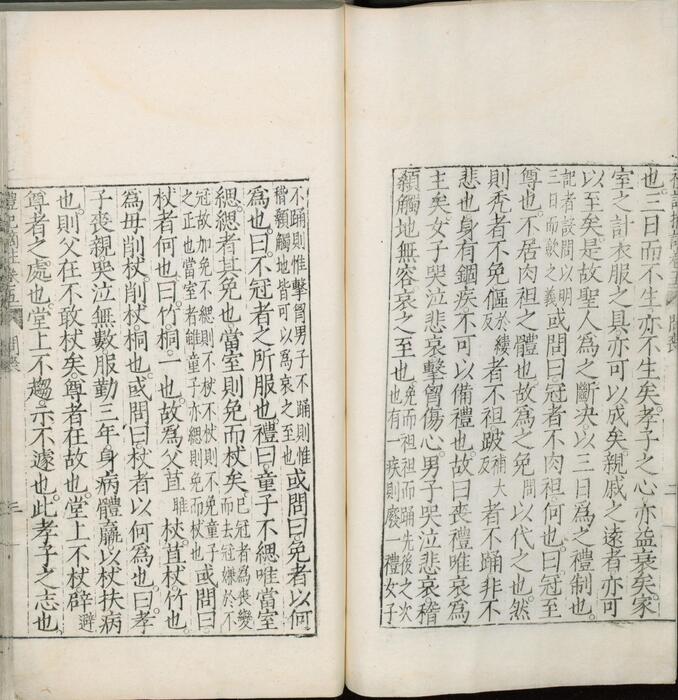 也。三日而不生亦不生矣。孝子之心亦益衰矣。家
室之計衣服之具亦可以成矣。親戚之遠者亦可
以至矣。是故聖人為之斷決。以三日為之禮制也。
記者設問以明三日而歛之義 或問曰。冠者不肉袒何也。曰。冠至
尊也。不居肉袒之體也。故為之免問以代之也。然
則秃者不免。傴於縷反者不袒。跛補大反者不踊。非不
悲也。身有錮疾。不可以備禮也。故曰。喪禮唯哀為
主矣。女子哭泣悲哀。擊胷傷心。男子哭泣悲哀。稽
顙觸地無容。哀之至也。免而袒袒而踊先後之次也有一疾則廢一禮女子
不踊則惟擊胷男子不踊則惟稽顙觸地皆可以為哀之至也 或問曰。免者以何
為也。曰。不冠者之所服也。禮曰。童子不緦。唯當室
緦。緦者其免也。當室則免而杖矣。已冠者為喪變而去冠嫌於不
冠故加免不緦則不杖不杖則不免童子之正也當室者雖童子亦緦則免而杖也 或問曰。
杖者何也。曰。竹桐一也。故為父苴雎杖。苴杖竹也。
為母削杖。削杖。桐也。或問曰。杖者以何為也。曰。孝
子喪親。哭泣無數。服勤三年。身病體羸。以杖扶病
也。則父在不敢杖矣。尊者在故也。堂上不杖。辟避
尊者之處也。堂上不趨。示不遽也。此孝子之志也。